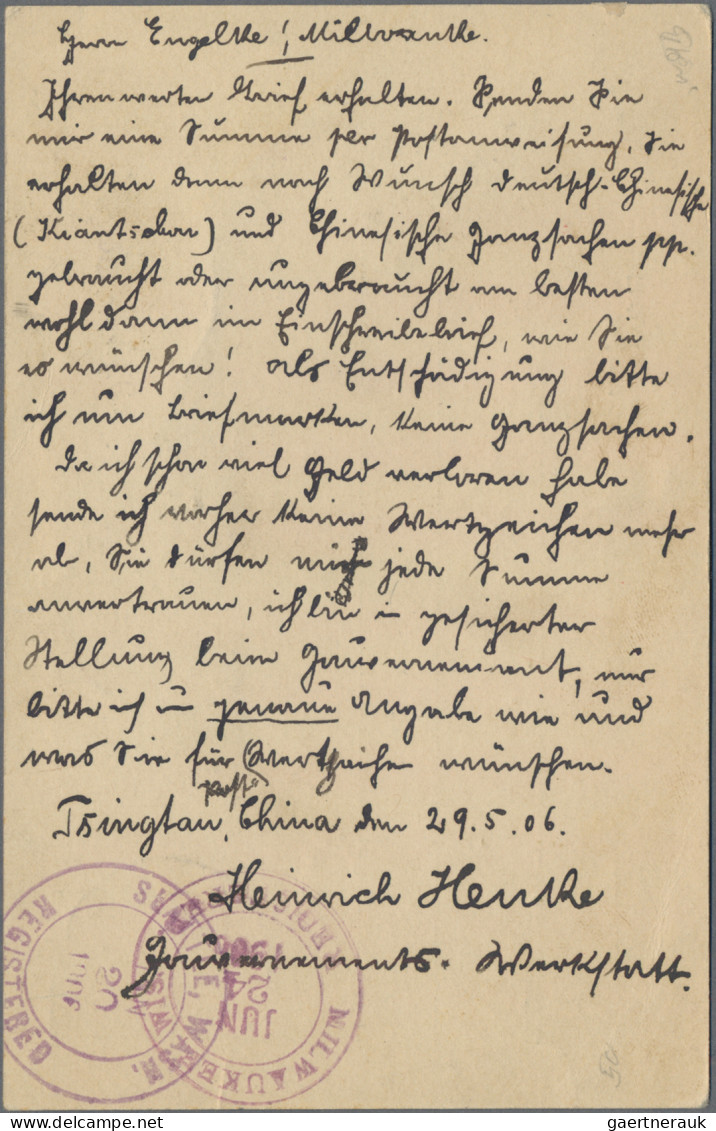 Herrn Engelke! Milwaukee.
Ihren werten Brief erhalten. Senden Sie
mir eine Summe per Postanweisung, Sie
erhalten dann nach Wunsch deutsch-Chinesische
(Kiautschau) und Chinesische Ganzsachen pp.
gebraucht oder ungebraucht am besten
wohl dann im Einschreibebrief, wie Sie
es wünschen! Als Entschädigung bitte
ich um Briefmarken, keine Ganzsachen.
Da ich schon viel Geld verloren habe
sende ich vorher keine Wertzeichen mehr
ab, Sie dürfen mir jede Summe
anvertrauen, ich bin in gesicherter
Stellung beim Gouvernement, nur
bitte ich um genaue Angabe wie und
was Sie für (Post) Wertzeichen wünschen.
Tsingtau, China den 29.5.06.
Heinrich Henke
Gouvernements-Werkstatt.
REGISTERED
1906
MILWAUKEE, WIS.
JUN
24
1906
gaertnerauk